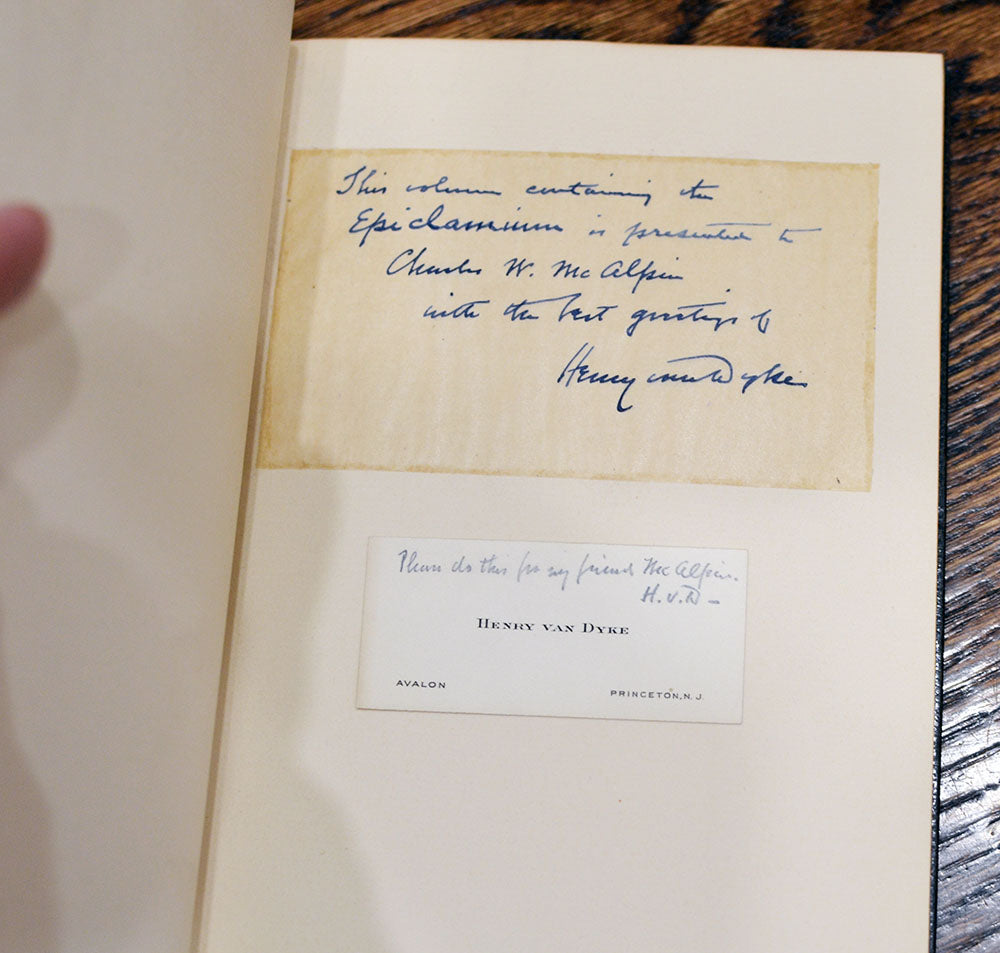 This volume containing the
Epiclamium is presented to
Charles W. McAlpin
with the best greetings of
Henry van Dyke
Please do this for my friend McAlpin.
H.v.D –
HENRY VAN DYKE
AVALON
PRINCETON, N. J.